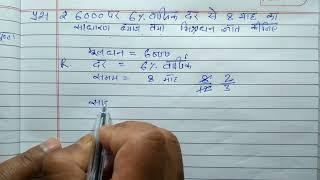 प्रश्न ₹ 6000 पर 6% वार्षिक दर से 8 माह का
साधारण ब्याज तथा मिश्रधन ज्ञात कीजिए
मूलधन = 6000
R. दर = 6% वार्षिक
समय = 8 माह 8/12 2/3
सा